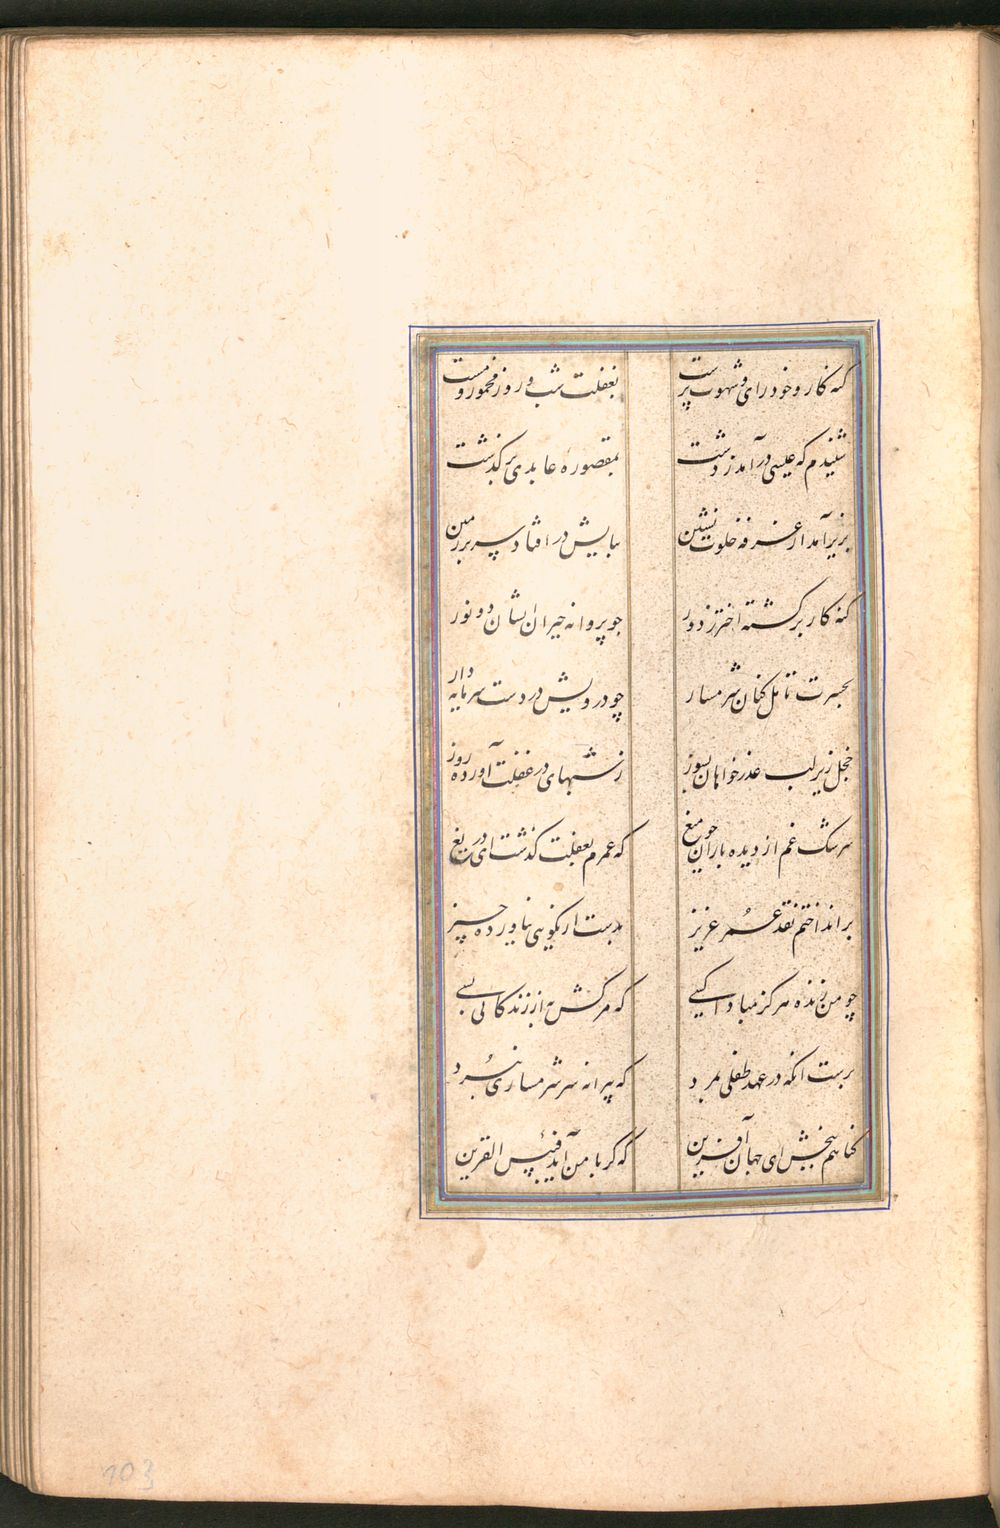 کنه کار و خودرای و شهوت پرست بغفلت شب و روز مخمور و مست
شنیدم که عیسی درآمد ز دشت بمقصوره عابدی برگذشت
بزیر آمد از غرفه خلوت نشین بپایش در افتاد سر بر زمین
کنه کار برگشته اختر ز دور چو پروانه حیران ایشان و نور
بحسرت تامل کنان شرمسار چو درویش در دست سرمایه دار
خجل زیر لب عذر خواهان بسوز ز شبهای در غفلت آورده روز
سرشک غم از دیده باران چو میغ که عمرم بغفلت گذشت ای دریغ
برانداختم نقد عمر عزیز بدست از نکویی نیاورده چیز
چو من زنده هرگز مبادا کسی که مرگش به از زندگانی بسی
برست آنکه در عهد طفلی بمرد که پیرانه سر شرمساری نبرد
گناهم ببخش ای جهان آفرین که گر با من آید فبئس القرین
103